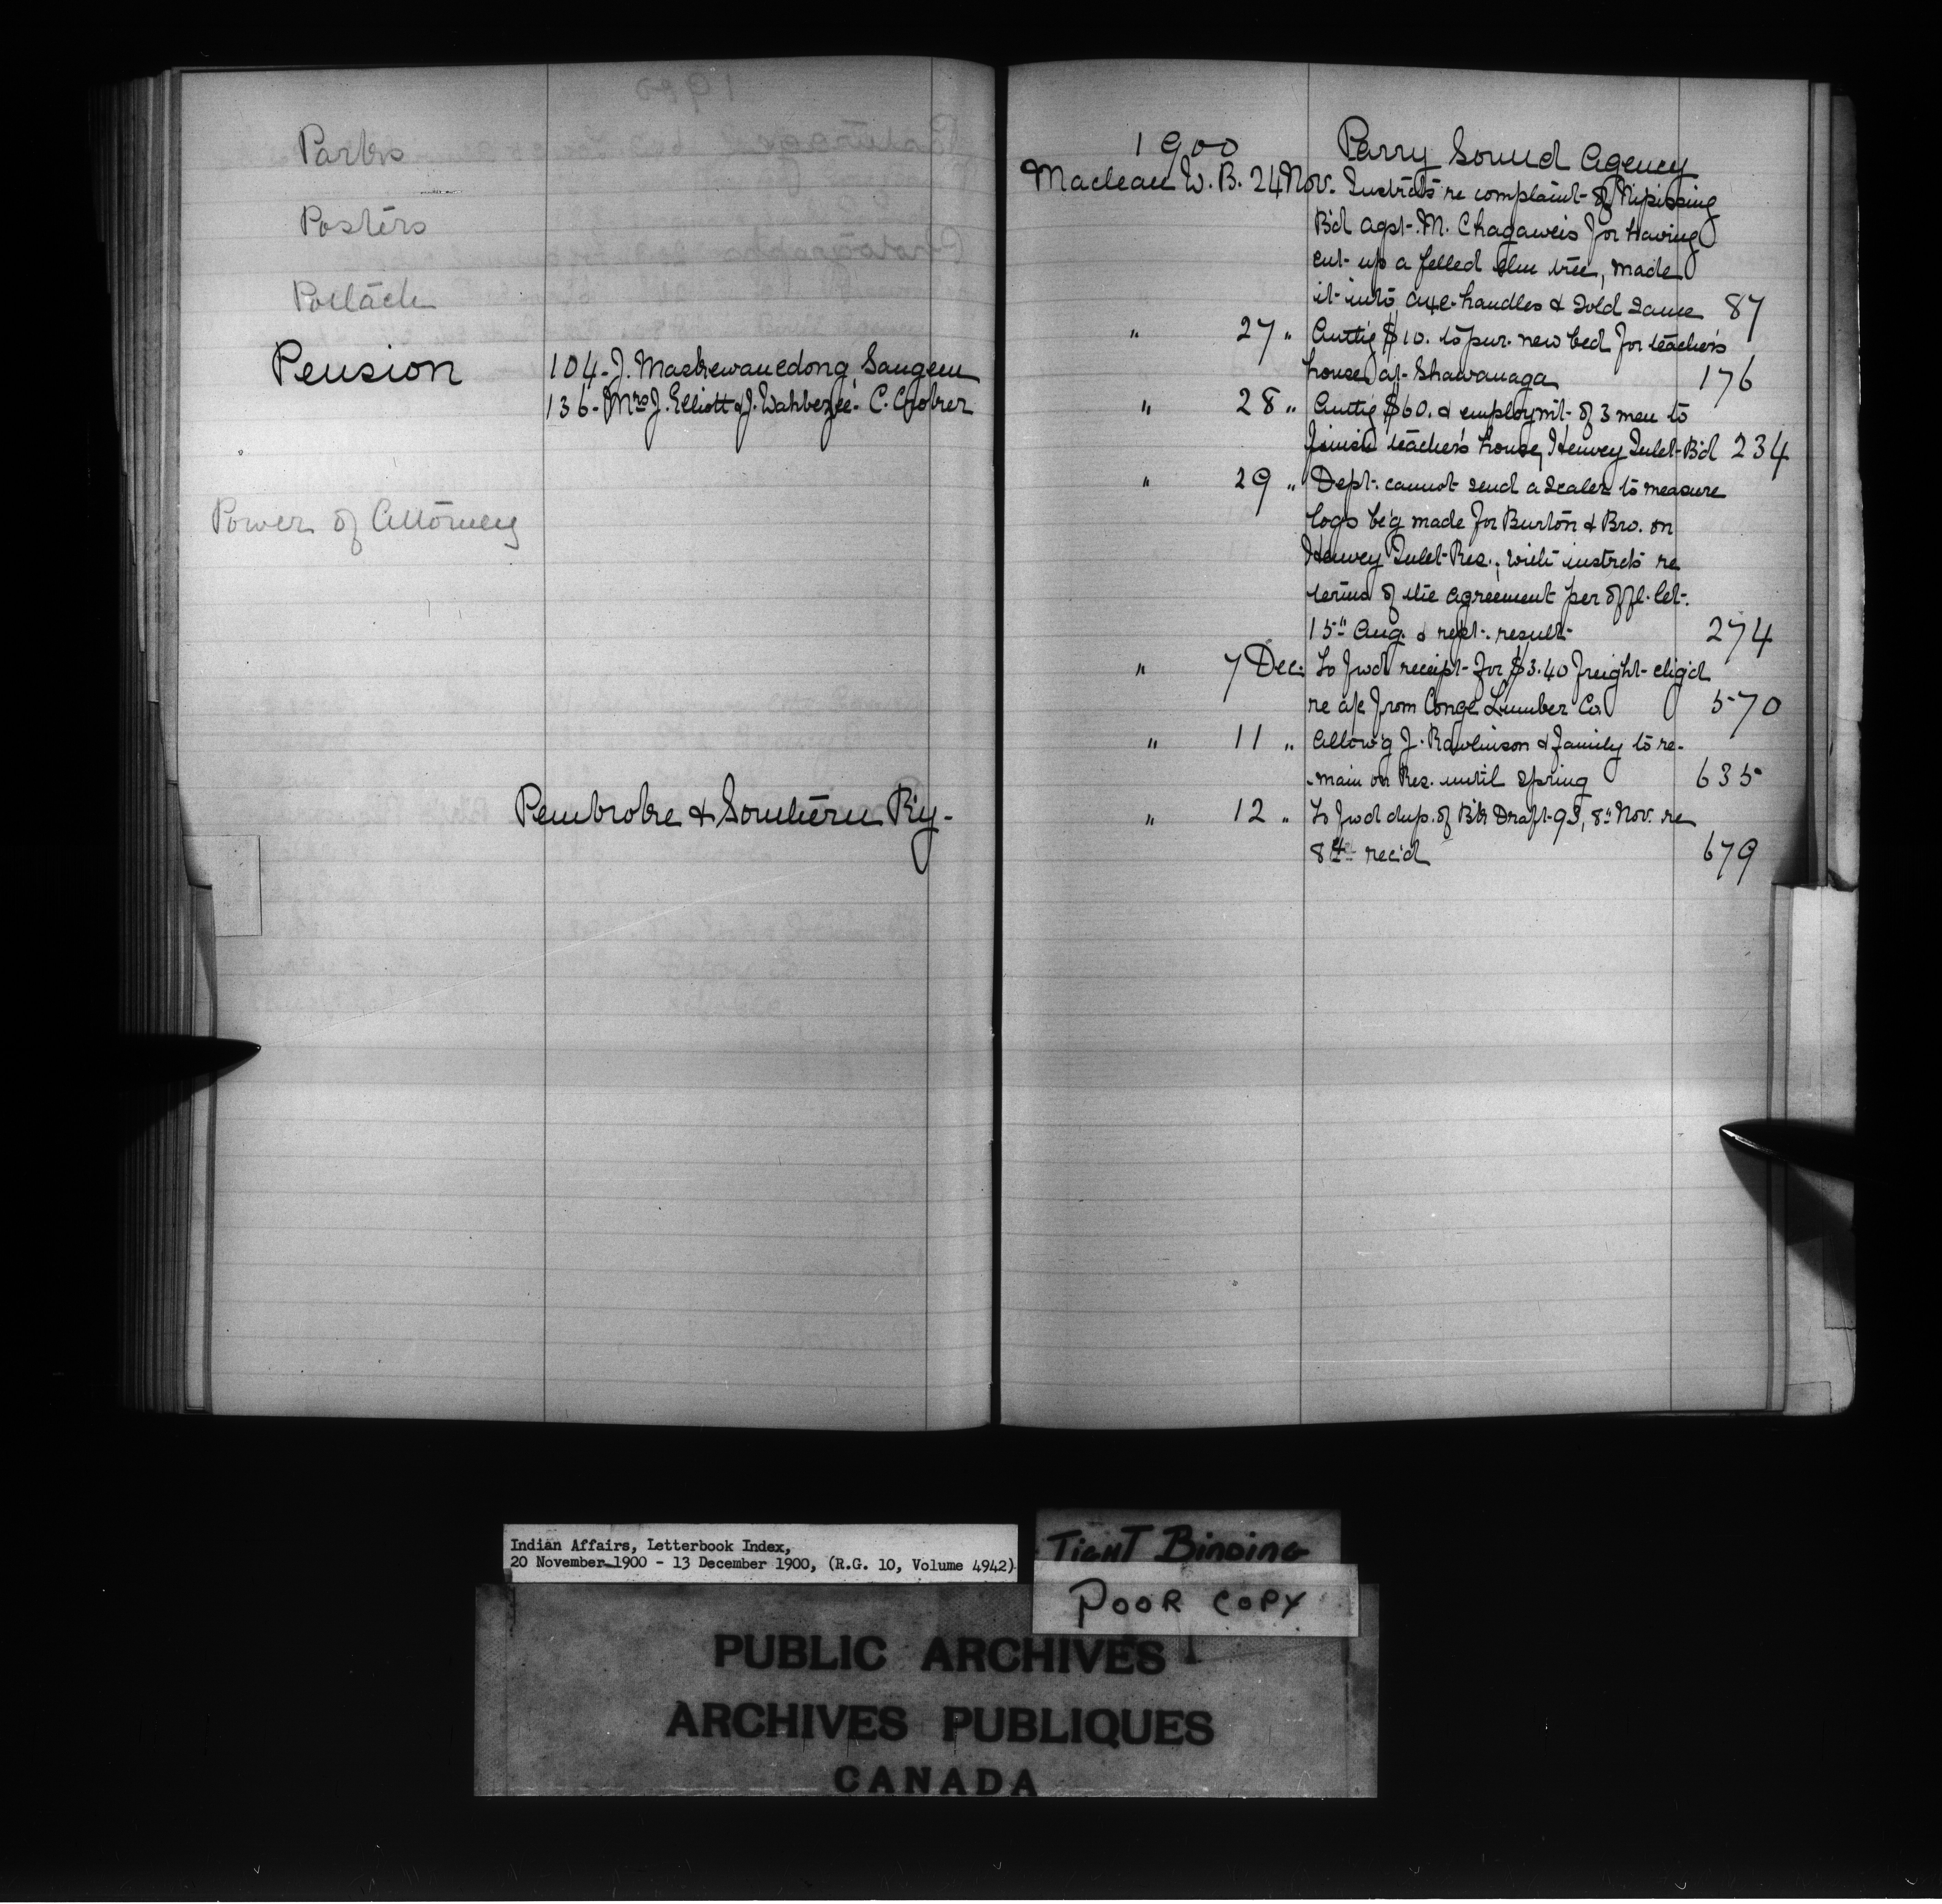 Parks
Posters
Potlach
Pension
104 - J. Mashewanedong, Saugeen
136 - Mrs J. Elliott & J. Wahbezee - C. Croker
Power of Attorney
Pembroke & Southern R'y -
1900 Parry Sound Agency
Maclean W. B. 24 Nov. Instrcts re complaint of Nipissing
Bd agst. M. Chagaweis for having
cut up a felled elm tree, made
it into axe-handles & sold same 87
" 27 " Auth'g $10. to pur. new bed for teacher's
house at Shawanaga 176
" 28 " Auth'g $60. & employm't of 3 men to
finish teacher's house, Henvey Inlet Bd 234
" 29 " Dept. cannot send a scaler to measure
logs be'g made for Burton & Bro. on
Henvey Inlet Res.; with instrcts re
terms of the agreement per offl. let.
15" Aug. & rept. result 274
" 7 Dec. To fwd receipt for $3.40 freight chg'd
re a/c from Conger Lumber Co. 570
" 11 " Allow'g J. Rawlinson & family to re-
-main on Res. until spring 635
" 12 " To fwd dup. of B'k Draft 93, 8" Nov. re
rec'd 679
Indian Affairs, Letterbook Index,
20 November 1900 - 13 December 1900, (R.G. 10, Volume 4942)
TIGHT BINDING
POOR COPY
PUBLIC ARCHIVES
ARCHIVES PUBLIQUES
CANADA